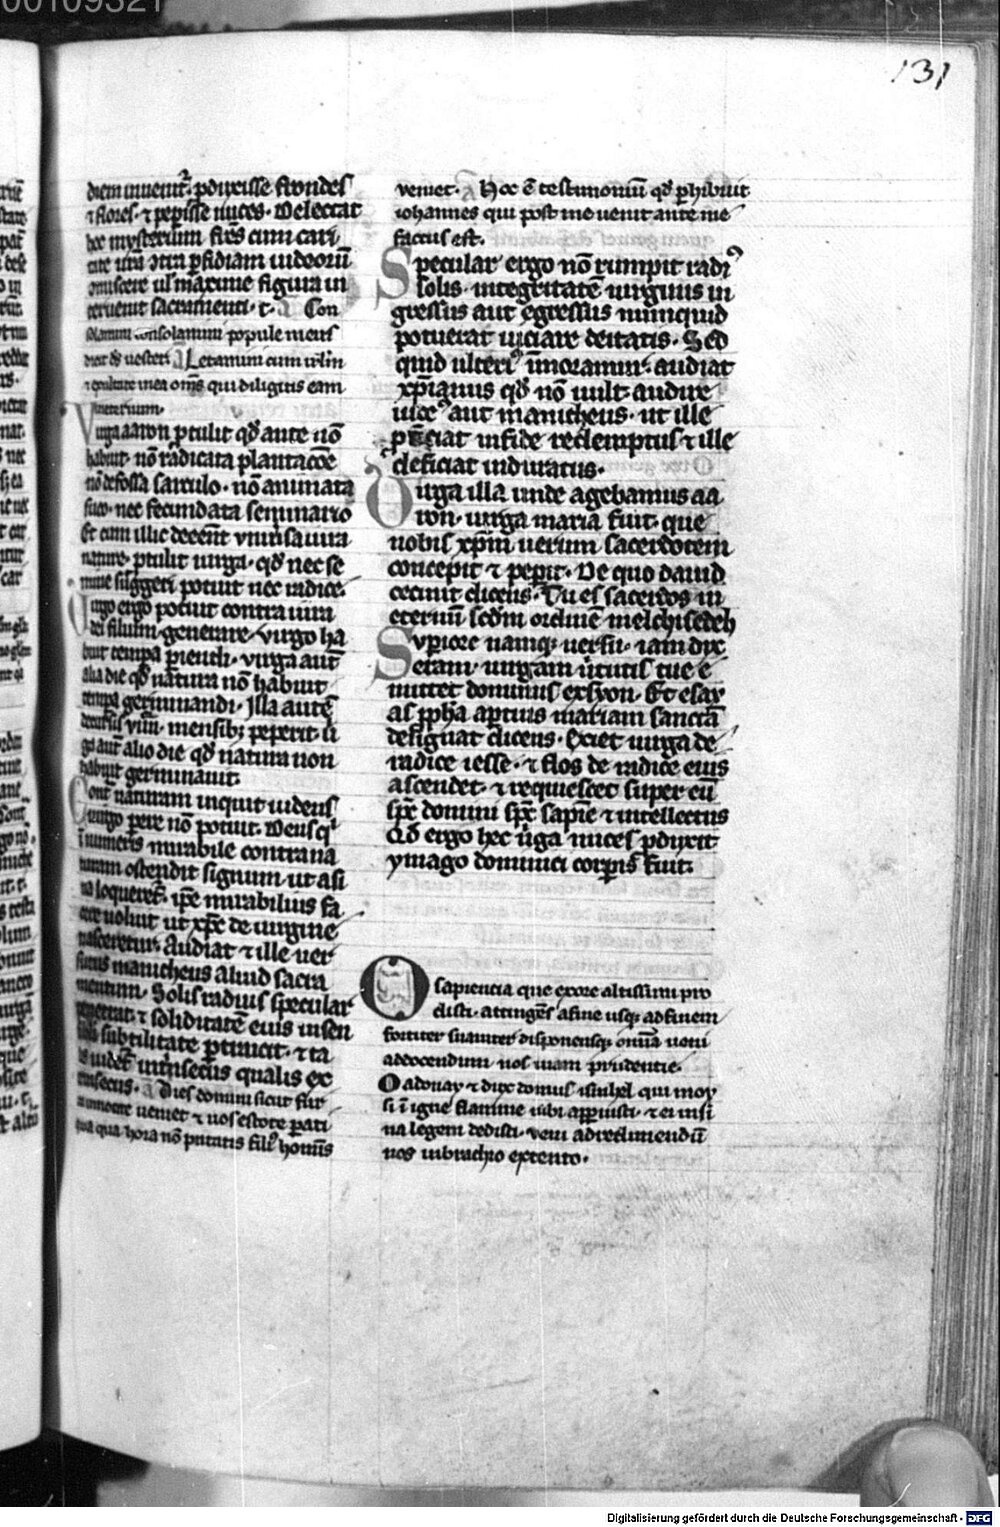 131
diem inuenit᷑. ꝓduxisse frondes
⁊ flores. ⁊ peperisse nuces. Delectat
hoc mysterium fr̄es cum cari
tate ura ꝯtra ꝑfidiam iudeorū
sacramenti. Con
solamini consolamini popule meus
dicit ds̄ uester. Letamini cum ierlm̄
⁊ exultate in ea om̄s qui diligitis eam
in eternum.
Virga aaron ꝓtulit qd̄ ante nō
habuit. nō radicata plantacōe
nō defossa sarculo. nō animata
suco. nec fecundata seminario
Et cum illic deeēnt vniuersa iura
nature. ꝓtulit uirga. qd̄ nec se
mine suggeri potuit nec radice.
Uirgo ergo potuit contra iura
dei filium generare. Virgo ha
buit tempa pariendi. virga aut̄
alia die qd̄ natura nō habuit
tempa germinandi. Illa autē
decursis viiii. mensibꝫ peperit. ū
ga aut̄ alio die qd̄ natura non
habuit germinauit.
Cont̄ naturam inquit iudeus
uirgo parere nō potuit. Deus q̇
ī numeris mirabile contra na
turam ostendit signum. ut asi
na loqueret᷑. ip̄e mirabilius fa
cere uoluit ut xp̄c de uirgine
nasceretur. Audiat ⁊ ille uer
sutus manicheus aliud sacra
mentum. Solis radius specular
penetrat. ⁊ soliditatē eius insen
sibili subtilitate ꝑtransit. ⁊ ta
lis uidet᷑ intrinsecus qualis ex
trinsecus. Dies domini sicut fur
in nocte ueniet ⁊ uos estote parati
quia qua hora nō putatis filiꝰ hominis
veniet. Hoc ē testimoniū qd̄ ꝑhibuit
iohannes qui post me uenit ante me
factus est.
Specular ergo nō rumpit radiꝰ
solis. integritatē uirginis in
gressus aut egressus numquid
potuerat uiciare deitatis. Sed
quid ulteriꝰ īmoramur. audiat
xp̄ianus qd̄ nō uult audire
iudeꝰ aut manicheus. ut ille
ꝓficiat in fide redemptus ⁊ ille
deficiat induratus.
Uirga illa unde agebamus aa
ron. uirga maria fuit. que
nobis xp̄m uerum sacerdotem
concepit ⁊ peperit. De quo dauid
cecinit dicens. Tu es sacerdos in
eternū scd̄m ordinē melchisedech
Supiore namqꝫ uersu. iam dix
erant. uirgam u̇tutis tue e
mittet dominus ex syon. Et esay
as ꝓph̄a aptius mariam sanctā
designat dicens. Exiet uirga de
radice iesse. ⁊ flos de radice eius
ascendet. ⁊ requiescet super eū
sp̄c domini sp̄c sapie ⁊ intellectus
Qd̄ ergo hec u̇ga nuces ꝓduxit
ymago dominici corꝑis fuit.
O sapiencia que ex ore altissimi pro
disti. attingēs afine usqꝫ ad finem
fortiter suauiter disponensqꝫ omīa ueni
ad docendum nos uiam prudentie.
O adonay ⁊ dux domus israhel qui moy
si ī igne flamme rubi apparuisti. ⁊ ei in si
na legem dedisti. veni ad redimendū
nos in brachio extento.
Digitalisierung gefördert durch die Deutsche Forschungsgemeinschaft - DFG